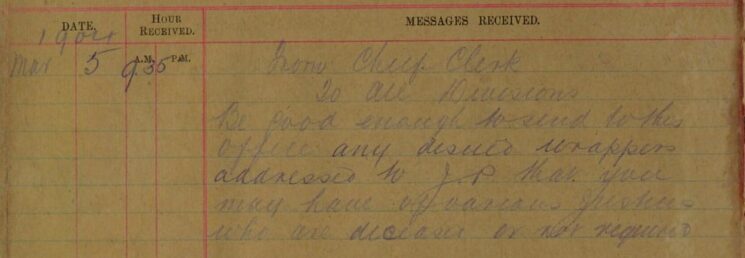 DATE, HOUR RECEIVED. MESSAGES RECEIVED.
1904
Mar 5 A.M. P.M. 9 35 From Chief Clerk
To All Divisions
Be good enough to send to this
office any wrappers
addressed to J.P. that you
may have of various Justices
who are decease or not required